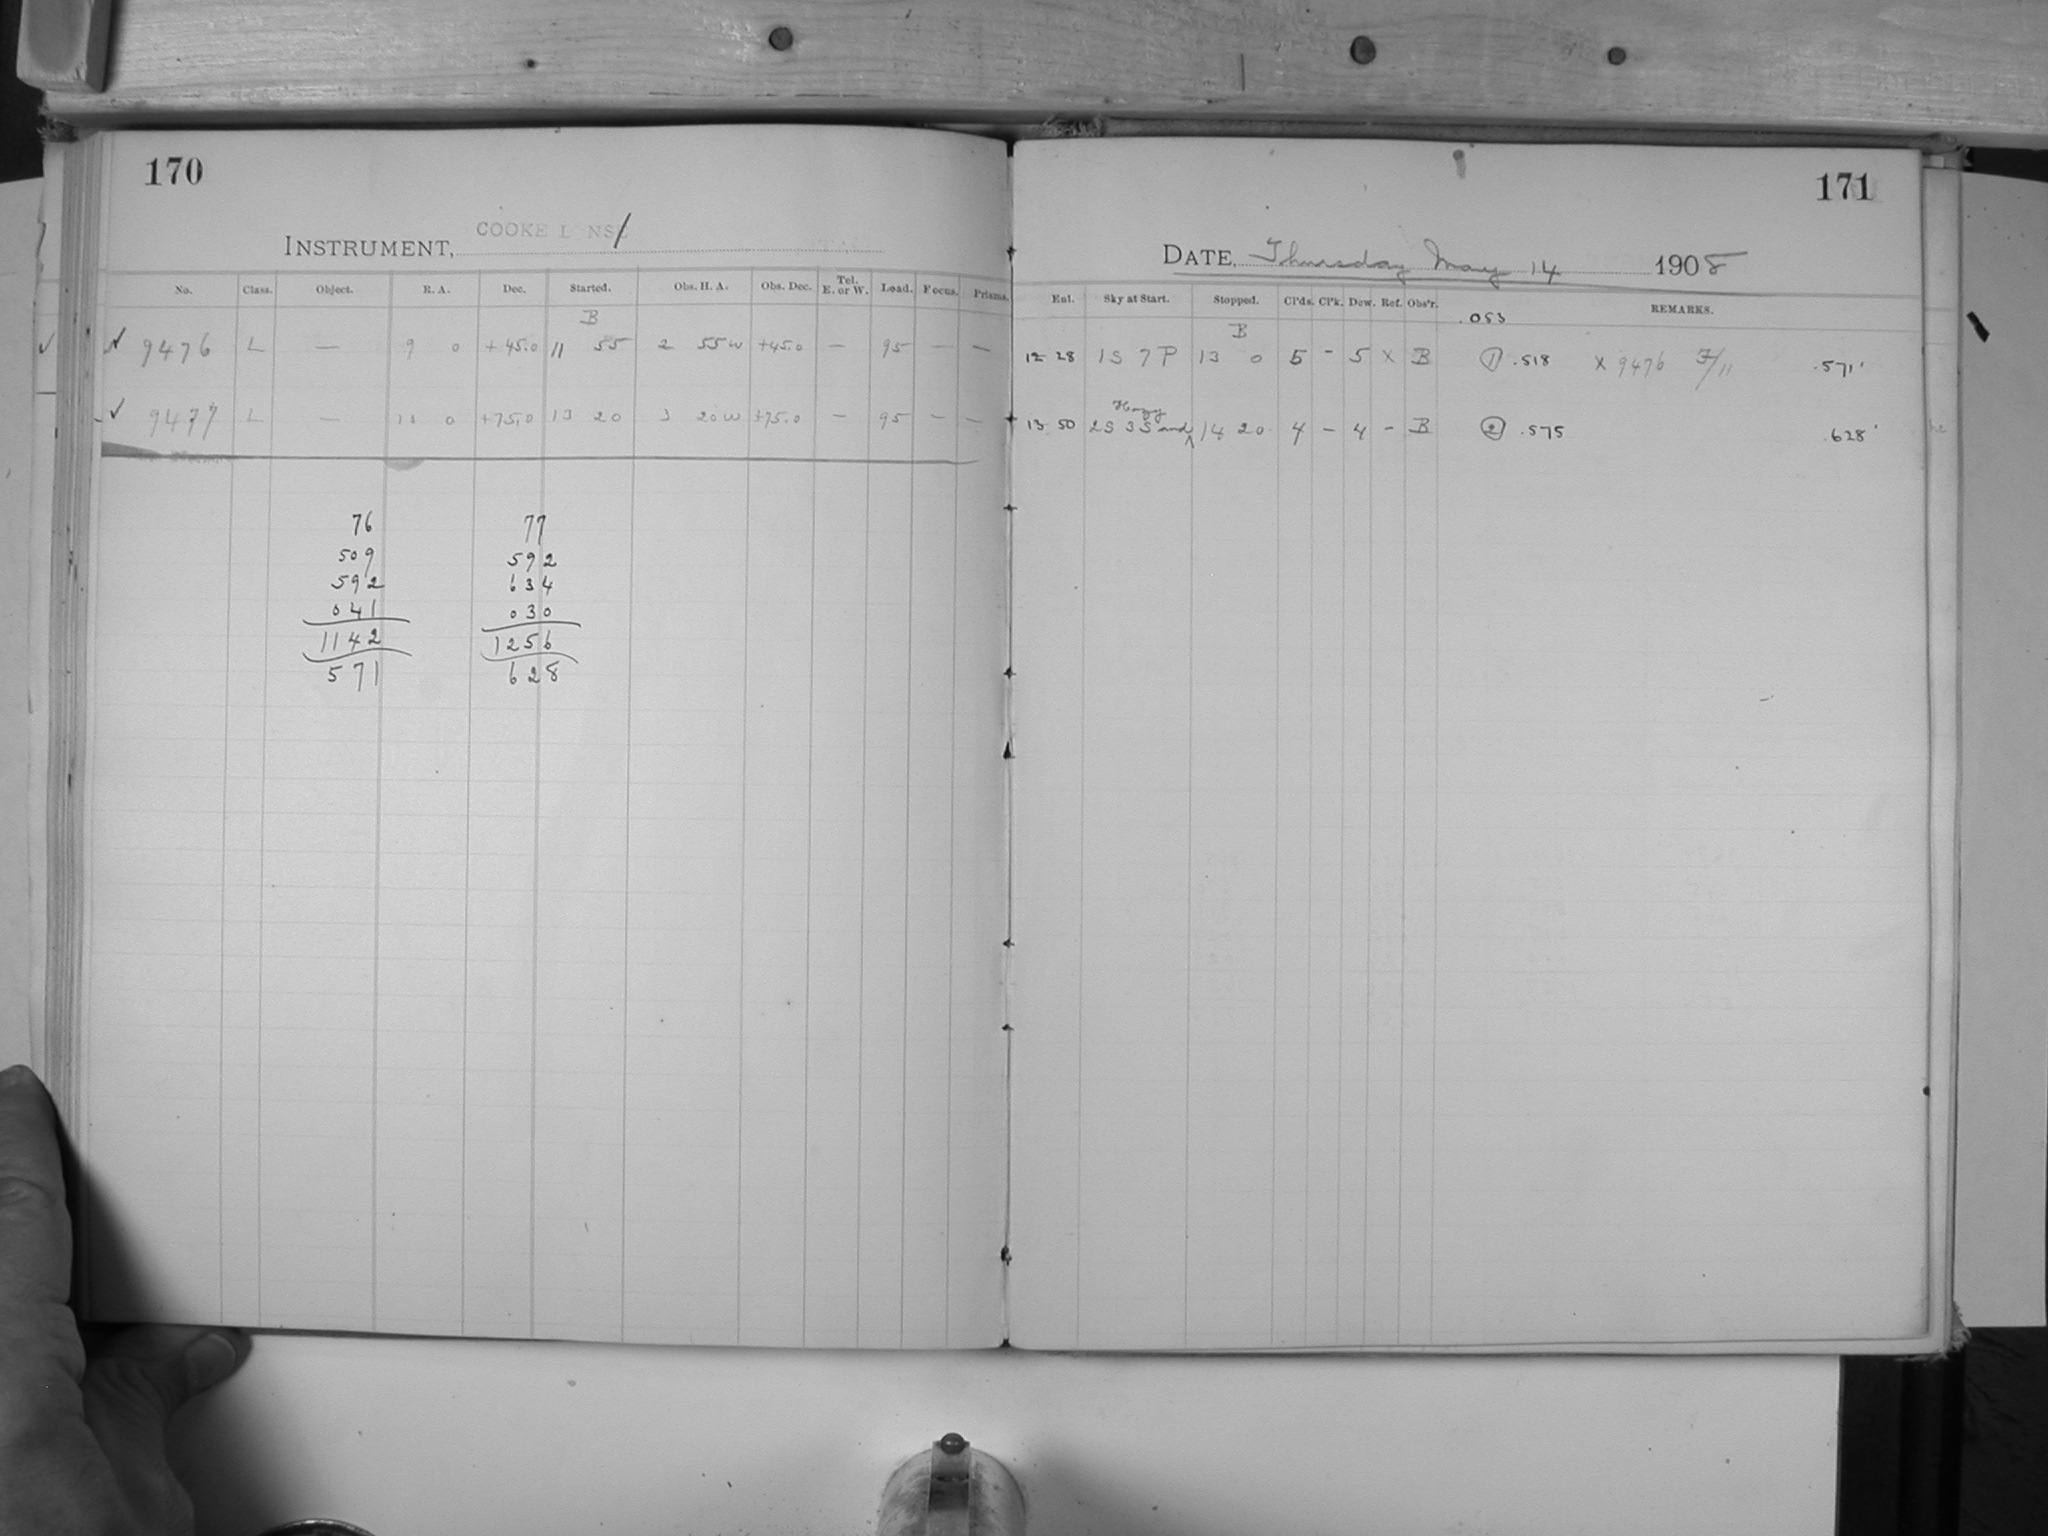 170
COOKE LENS
INSTRUMENT,
No. Class. Object. R. A. Dec. Started. Obs. H. A. Obs. Dec. Tel. E. or W. Load. Focus. Prisms.
B
✓ 9476 L — 9 0 +45.0 11 55 2 55 W +45.0 — 95 — —
✓ 9477 L — 10 0 +75.0 13 20 3 20 W +75.0 — 95 — —
76 77
509 592
592 634
041 030
1142 1256
571 628
171
DATE, Thursday May 14 1908
Ent. Sky at Start. Stopped. Cl'ds. Cl'k. Dew. Ref. Obs'r. REMARKS.
B .053
12 28 1S 7P 13 0 5 - 5 X B ① .518 X 9476 F/11 .571'
Hazy
13 50 2S 3S and ^ 14 20 4 - 4 - B ② .575 .628'